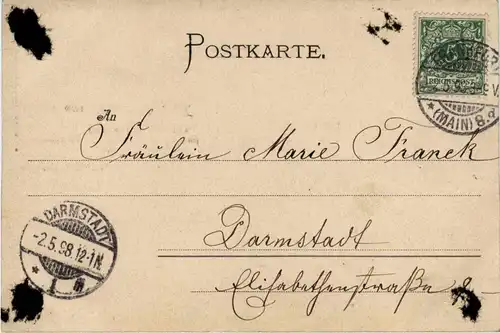 POSTKARTE.
REICHSPOST
(MAIN)
An
Fräulein Marie Franck
DARMSTADT
-2.5.98.12-1N.
* 1 *
Darmstadt
Elisabethenstraße